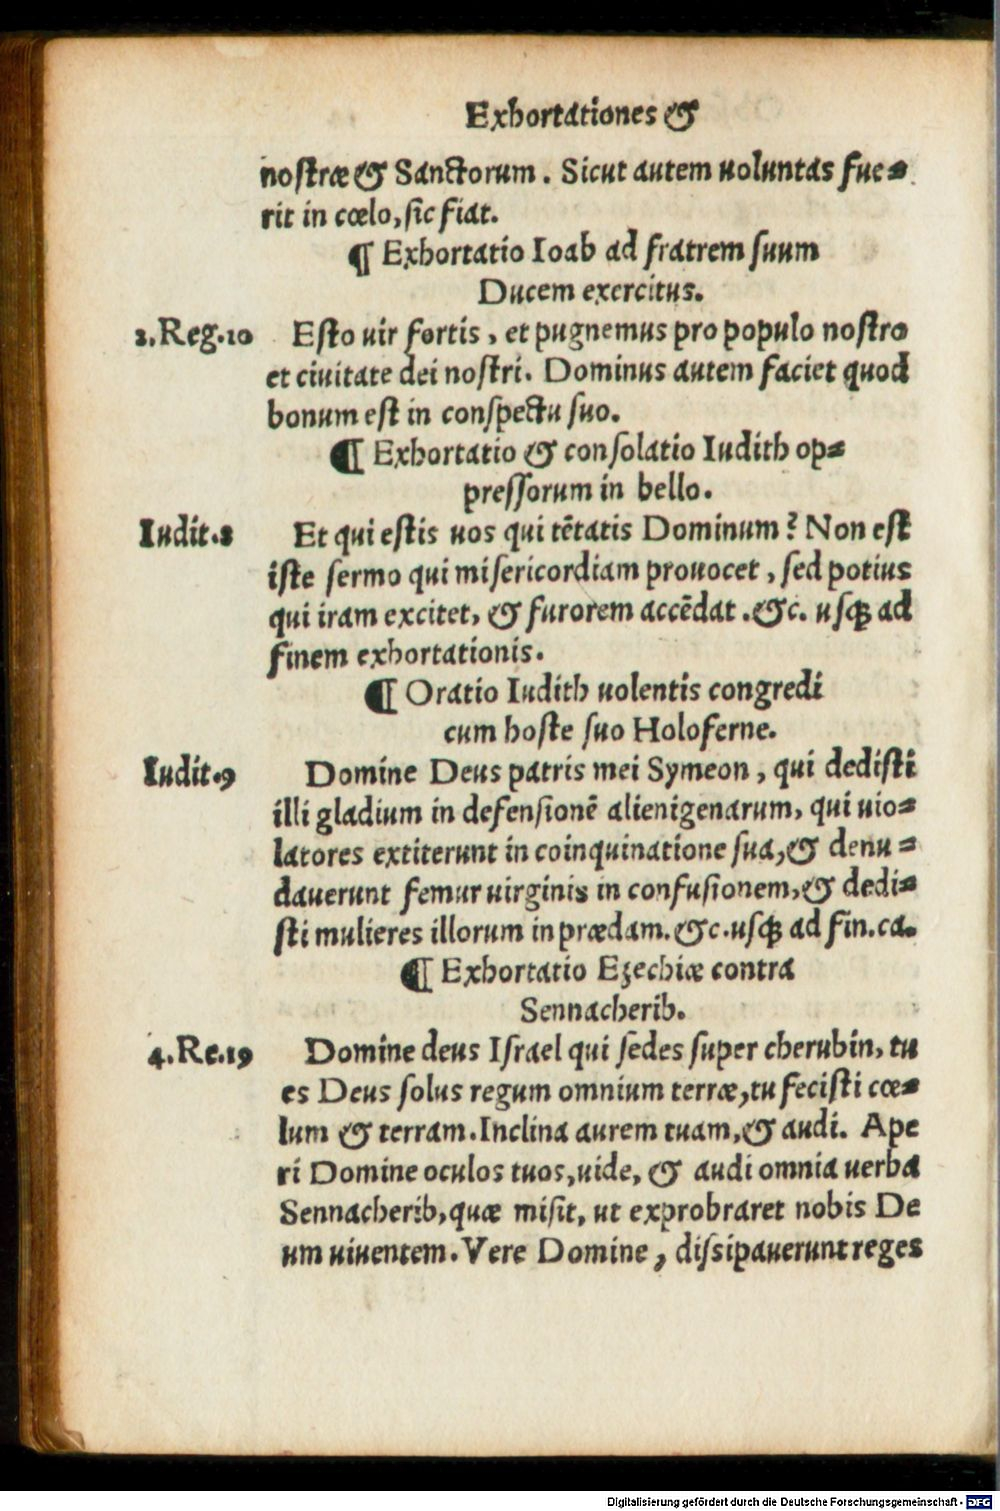 Exhortationes &
nostræ & Sanctorum. Sicut autem uoluntas fue=
rit in cœlo, sic fiat.
¶ Exhortatio Ioab ad fratrem suum
Ducem exercitus.
2.Reg.10 Esto uir fortis, et pugnemus pro populo nostro
et ciuitate dei nostri. Dominus autem faciet quod
bonum est in conspectu suo.
¶ Exhortatio & consolatio Iudith op=
pressorum in bello.
Iudit.8 Et qui estis uos qui tētatis Dominum? Non est
iste sermo qui misericordiam prouocet, sed potius
qui iram excitet, & furorem accēdat .&c. usq; ad
finem exhortationis.
¶ Oratio Iudith uolentis congredi
cum hoste suo Holoferne.
Iudit.9 Domine Deus patris mei Symeon, qui dedisti
illi gladium in defensionē alienigenarum, qui uio=
latores extiterunt in coinquinatione sua, & denu=
dauerunt femur uirginis in confusionem, & dedi=
sti mulieres illorum in prædam. &c. usq; ad fin. ca.
¶ Exhortatio Ezechiæ contra
Sennacherib.
4.Re.19 Domine deus Israel qui sedes super cherubin, tu
es Deus solus regum omnium terræ, tu fecisti cœ=
lum & terram. Inclina aurem tuam, & audi. Ape
ri Domine oculos tuos, uide, & audi omnia uerba
Sennacherib, quæ misit, ut exprobraret nobis De
um uiuentem. Vere Domine, dissipauerunt reges
Digitalisierung gefördert durch die Deutsche Forschungsgemeinschaft - DFG